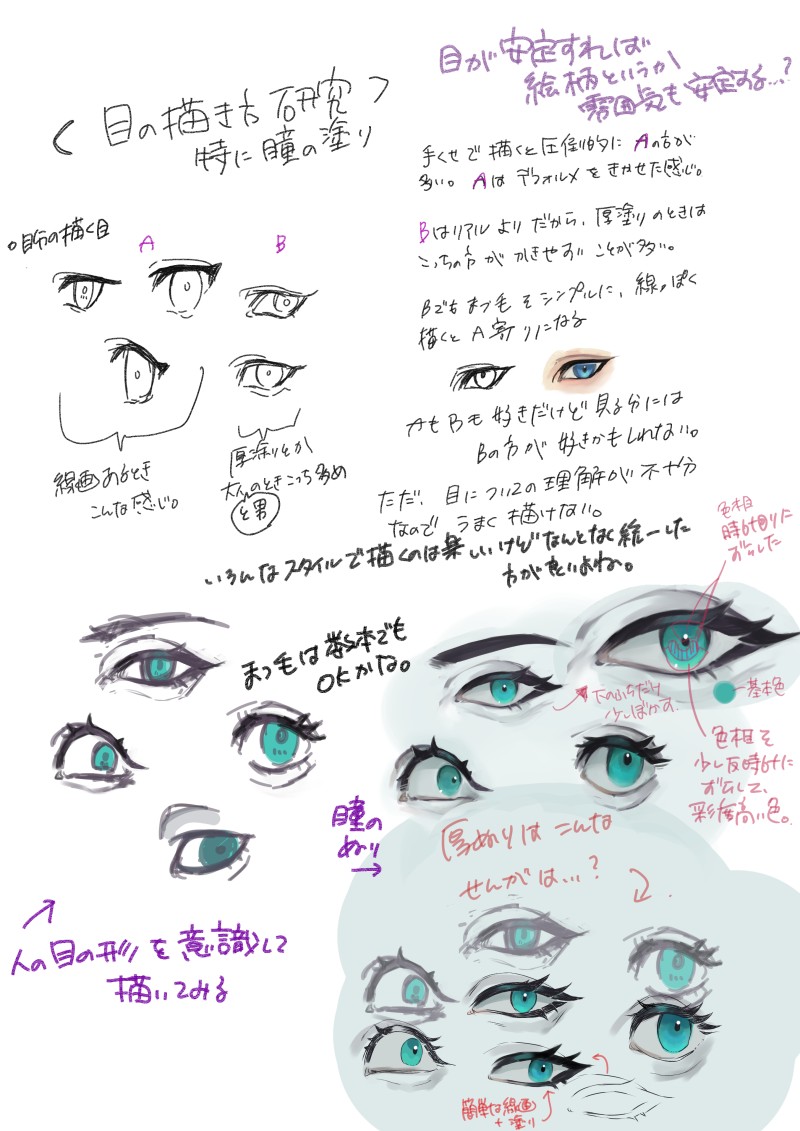 < 目の描き方 研究 >
特に瞳の塗り
目が安定すれば
絵柄というか
雰囲気も安定する…?
手ぐせで描くと圧倒的にAの方が
多い。Aはデフォルメをきかせた感じ。
Bはリアルよりだから、厚塗りのときは
こっちの方がかきやすいことが多い。
Bでもまつ毛をシンプルに、線っぽく
描くとA寄りになる
。自分の描く目
A
B
線画あるとき
こんな感じ。
厚塗りとか
大人のときこっち多め
と男
AもBも好きだけど見る分には
Bの方が好きかもしれない。
ただ、目についての理解が不十分
なのでうまく描けない。
いろんなスタイルで描くのは楽しいけどなんとなく統一した
方が良いよね。
色相
時計回りに
ずらした
まつ毛は数本でも
OKかな。
下のふちだけ
少しぼかす。
基本色
色相を
少し反時計に
ずらして、
彩度高い色。
瞳の
ぬり
→
厚ぬりはこんな
せんがは…?
人の目の形を意識して
描いてみる
簡単な線画
+塗り